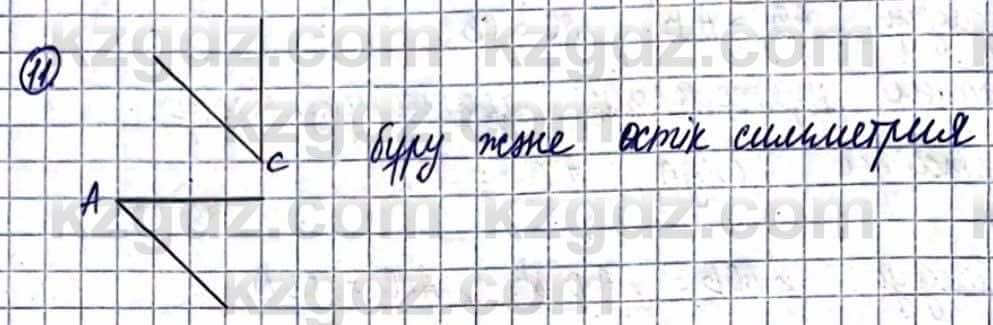 kzgdz.com kzgdz.com
11
kzgdz.com
C
бұру және остік симметрия
A
kzgdz.com kzgdz.com
kzgdz.com